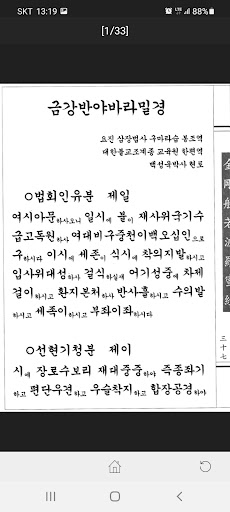 SKT 13:19 88%
[1/33]
금강반야바라밀경
요진 삼장법사 구마라습 봉조역
대한불교조계종 교육원 한편역
백성욱박사 현토
○법회인유분 제일
여시아문하사오니 일시에 불이 재사위국기수
급고독원하사 여대비구중천이백오십인으로
구하시다 이시에 세존이 식시에 착의지발하시고
입사위대성하사 걸식하실새 어기성중에 차제
걸이하시고 환지본처하사 반사흘하시고 수의발
하시고 세족이하시고 부좌이좌하시다
○선현기청분 제이
시에 장로수보리 재대중중하야 즉종좌기
하고 편단우견하고 우슬착지하고 합장공경하야
金剛般若波羅蜜經
三十七